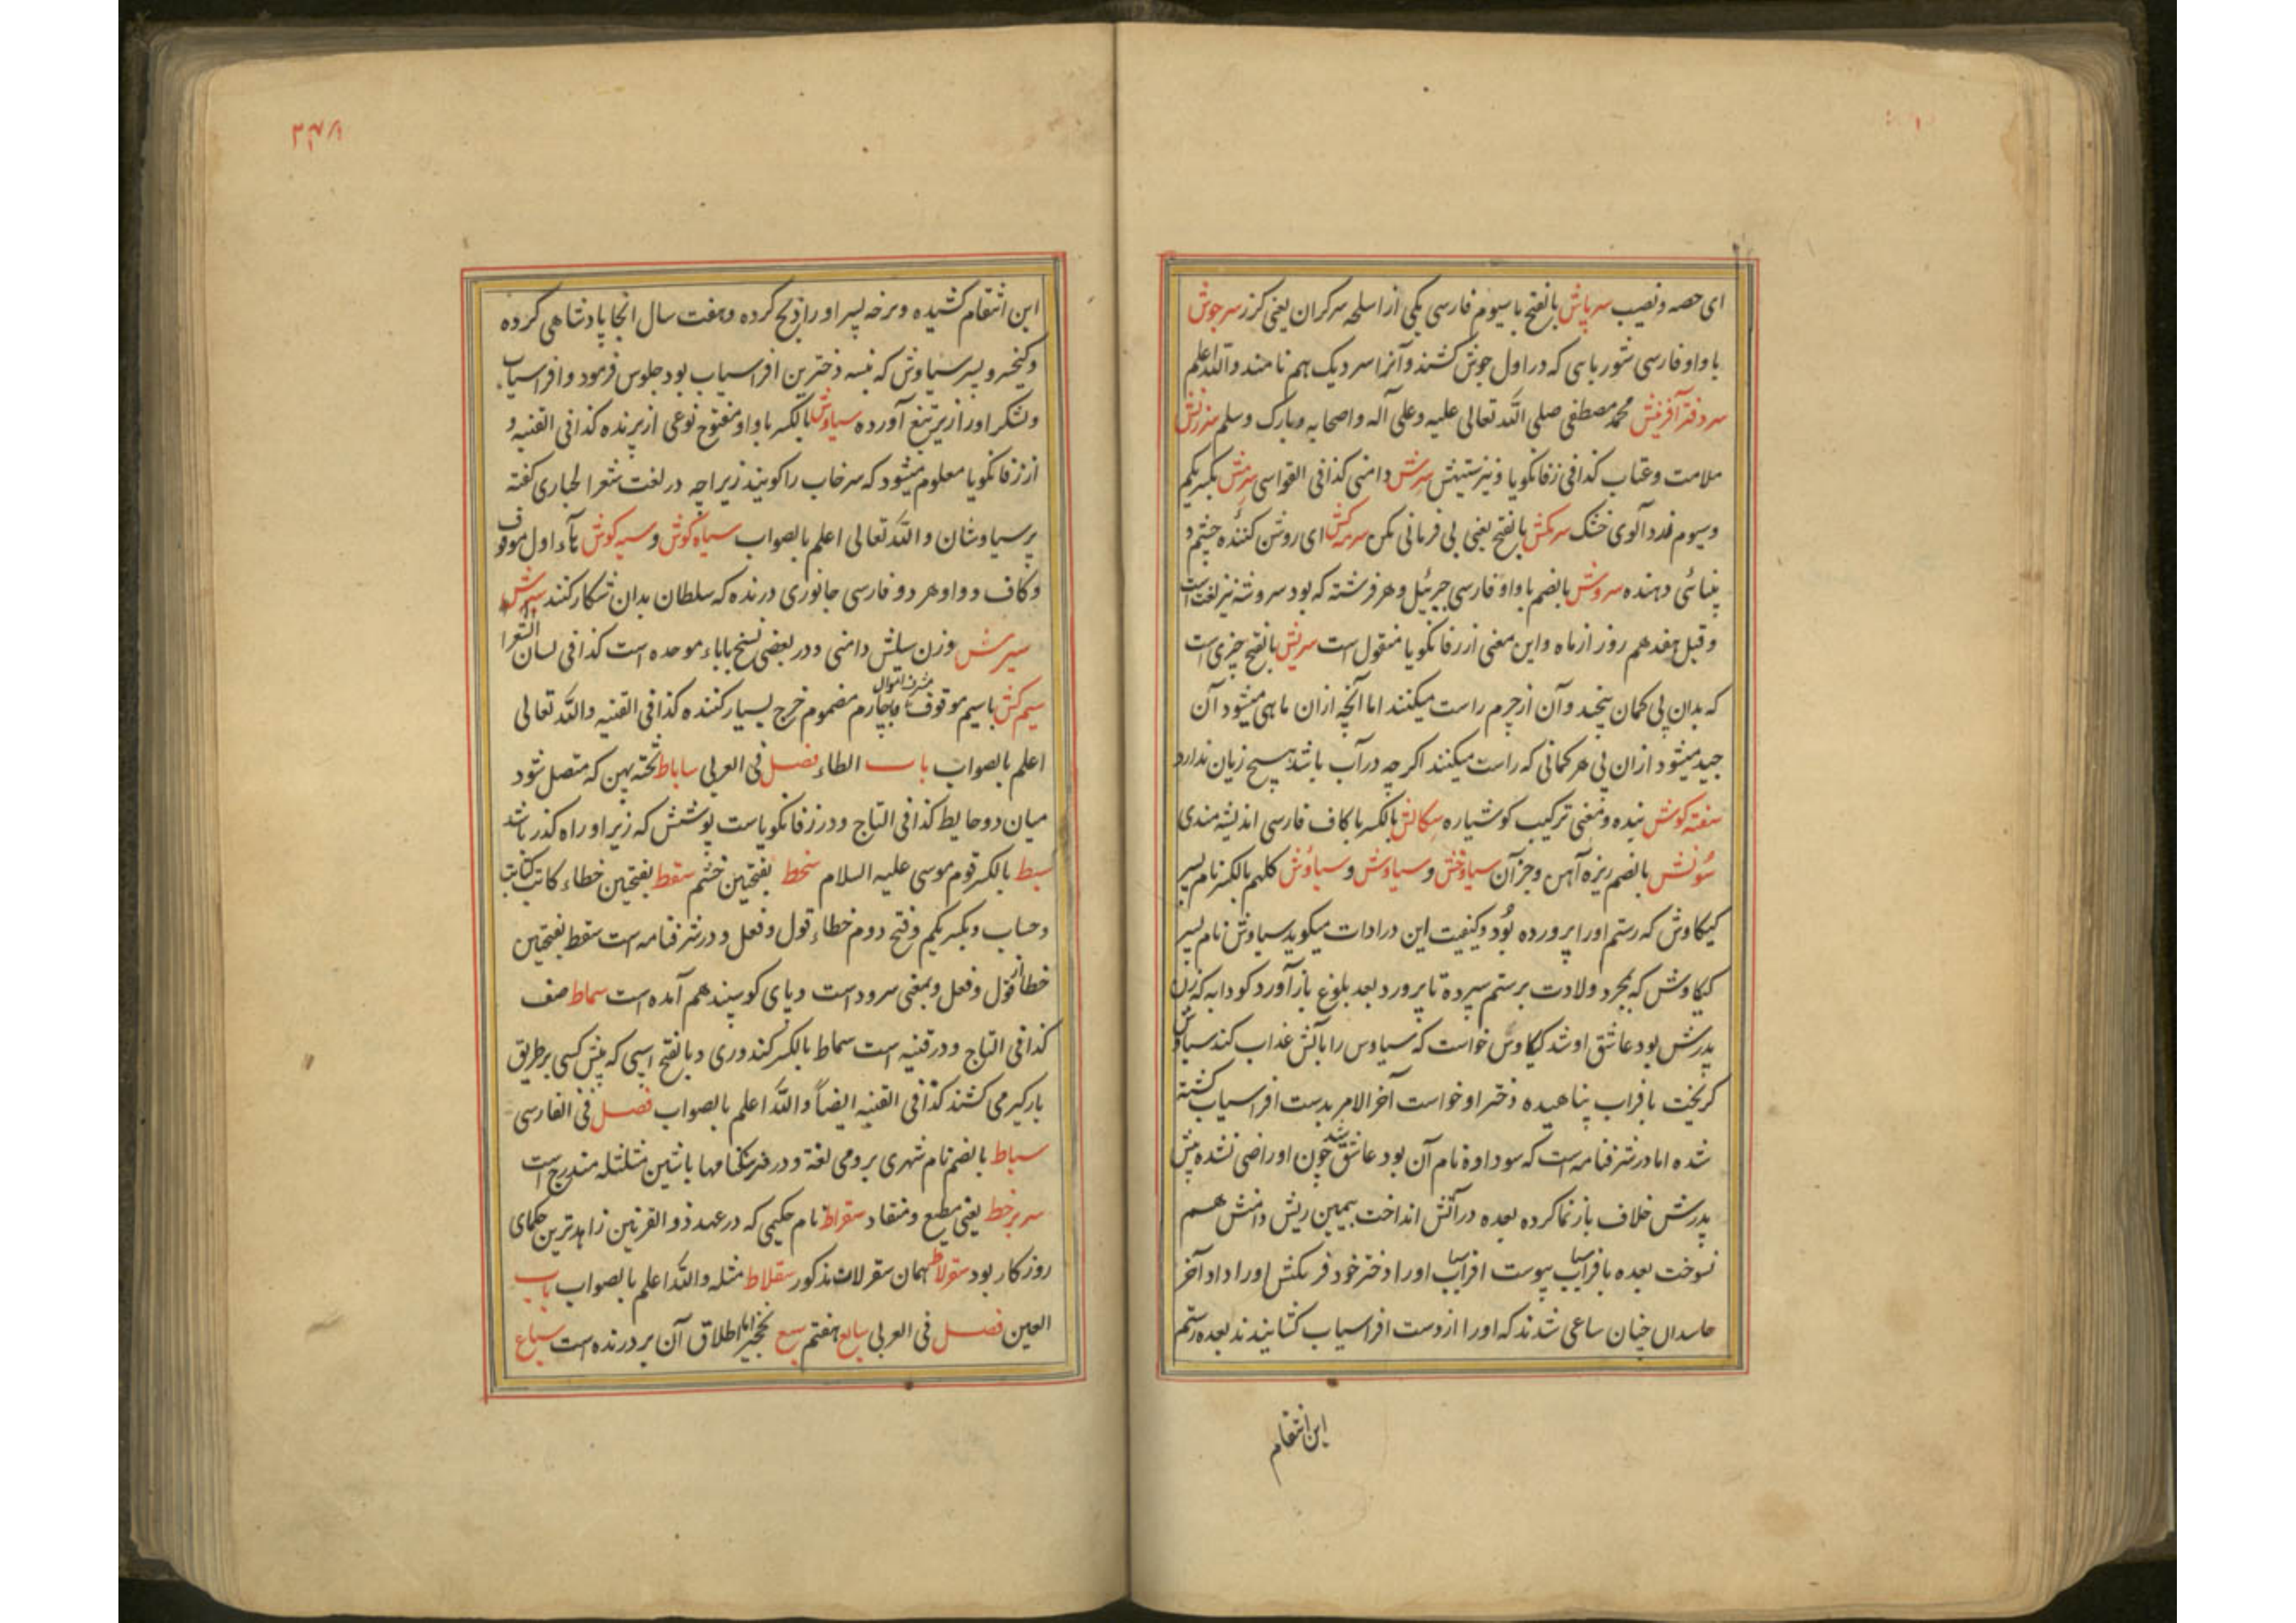 ای حصه و نصیب سرپاش بالفتح با سیوم فارسی یکی از اسلحه سرکران یعنی کرز سرجوش
با واو فارسی شوربایی که در اول جوش کشند و آنرا سردیک هم نامند والله اعلم
سردفتر آفرینش محمد مصطفی صلی الله تعالی علیه و علی آله و اصحابه و بارک و سلم سرزنش
ملامت و عتاب کذا فی زفانکویا و نیز سرش دامنی کذا فی القواسی سرمش بکسر یکم
و سیوم آلوی خشک سرکش بالفتح یعنی بی فرمانی مکن سرمه کش ای روشن کننده چشم و
بینائی دهنده سروش بالضم با واو فارسی جبرئیل و هر فرشته که بود سروشه نیز لغت است
و قیل هفدهم روز از ماه و این معنی از زفانکویا منقول است سریش بالفتح چیزی است
که بدان پی کمان پیچند و آن از چرم راست میکنند اما آنچه از آن ماهی میشود آن
جید میشود از آن پی هر کمانی که راست میکنند اکرچه در آب باشد هیچ زیان ندارد
سفته کوش بنده و معنی ترکیب کوشیاره سکالش بالکسر با کاف فارسی اندیشه مندی
سونش بالضم ریزه آهن و جز آن سیاوخش و سیاوش و سیاؤش کلهم بالکسر نام پسر
کیکاوش که رستم او را پرورده بود و کیفیت این در ادات میکوید سیاوش نام پسر
کیکاوش که بمجرد ولادت برستم سپرده تا پرورد بعد بلوغ باز آورد سودابه که زن
پدرش بود عاشق او شد کیکاوس خواست که سیاوس را بآتش عذاب کند سیاوش
کریخت با فراب پناهیده دختر او خواست آخر الامر بدست افراسیاب کشته
شده اما در شرفنامه است که سوداوه نام آن بود عاشق شد چون او راضی نشده پیش
پدرش خلاف باز نما کرده بعده در آتش انداخت بیمین ریش دامنش هم
نسوخت بعده بافراسیاب پیوست افراسیاب او را دختر خود فریکنش او را داد آخر
حاسدان چنان ساعی شدند که او را از دست افراسیاب کشانیدند بعده رستم
این انتقام
این انتقام کشیده و سرخه پسر او را ذبح کرده و هفت سال انجا پادشاهی کرده
و کیخسرو پسر سیاوش که نبسه دخترین افراسیاب بود جلوس فرمود و افراسیاب
و لشکر او را زیر تیغ آورده سیاوش بالکسر با واو مفتوح نوعی از پرنده کذا فی القنیه و
از زفانکویا معلوم میشود که سرخاب را کویند زیراچه در لغت شعر الحباری کفته
پر سیاوشان والله تعالی اعلم بالصواب سیاه کوش و سیه کوش باء اول موقوف
و کاف و واو هر دو فارسی جانوری درنده که سلطان بدان شکار کنند سیرش
سیرش وزن سیلش دامنی و در بعضی نسخ با باء موحده است کذا فی لسان الشعرا
سیم کش با سیم موقوف و با چهارم مضموم خرج بسیار کننده مسرف اموال کذا فی القنیه والله تعالی
اعلم بالصواب باب الطاء فصل فی العربی ساباط تخته پهن که متصل شود
میان دو حایط کذا فی التاج و در زفانکویاست پوشش که زیر او راه کذر باشد
سبط بالکسر قوم موسی علیه السلام سخط بفتحتین خشم سقط بفتحتین خطاء کاتب کتابت
و حساب و بکسر یکم و فتح دوم خطاء قول و فعل و در شرفنامه است سقط بفتحتین
خطا از قول و فعل و بمعنی سرود است و پای کوسپند هم آمده است سماط صف
کذا فی التاج و در قنیه است سماط بالکسر کندوری و بالفتح اسپی که پیش کسی بر طریق
بارکیر می کشند کذا فی القنیه ایضاً والله اعلم بالصواب فصل فی الفارسی
سباط بالضم نام شهری برومی لغة و در فرهنکنامها با شین مثلثه مندرج است
سر بر خط یعنی مطیع و منقاد سقراط نام حکیمی که در عهد ذو القرنین زاهدترین حکمای
روزکار بود سقولاط همان سقرلات مذکور سقلاط مثله والله اعلم بالصواب باب
العین فصل فی العربی سابع هفتم سبع نخجیر اما اطلاق آن بر درنده است سباع